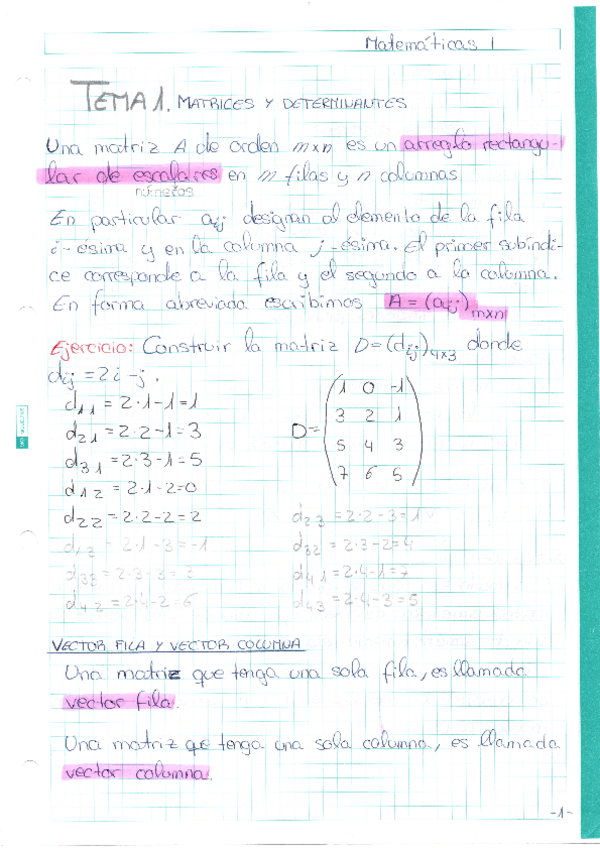 Matemáticas I
TEMA 1. MATRICES Y DETERMINANTES
Una matriz A de orden mxn es un arreglo rectangu-
lar de escalares en m filas y n columnas
números
En particular aij designan al elemento de la fila
i-ésima y en la columna j-ésima. El primer subíndi-
ce corresponde a la fila y el segundo a la columna.
En forma abreviada escribimos A = (aij)mxn
Ejercicio: Construir la matriz D=(dij)4x3 donde
dij = 2i-j.
d11 = 2·1-1=1
d21 = 2·2-1=3
d31 = 2·3-1=5
d12 = 2·1-2=0
d22 = 2·2-2=2
d13 = 2·1-3=-1
d33 = 2·3-3=3
d42 = 2·4-2=6
D=
1 0 -1
3 2 1
5 4 3
7 6 5
d23 = 2·2-3=1
d32 = 2·3-2=4
d41 = 2·4-1=7
d43 = 2·4-3=5
VECTOR FILA Y VECTOR COLUMNA
Una matriz que tenga una sola fila, es llamada
vector fila.
Una matriz que tenga una sola columna, es llamada
vector columna.
-1-